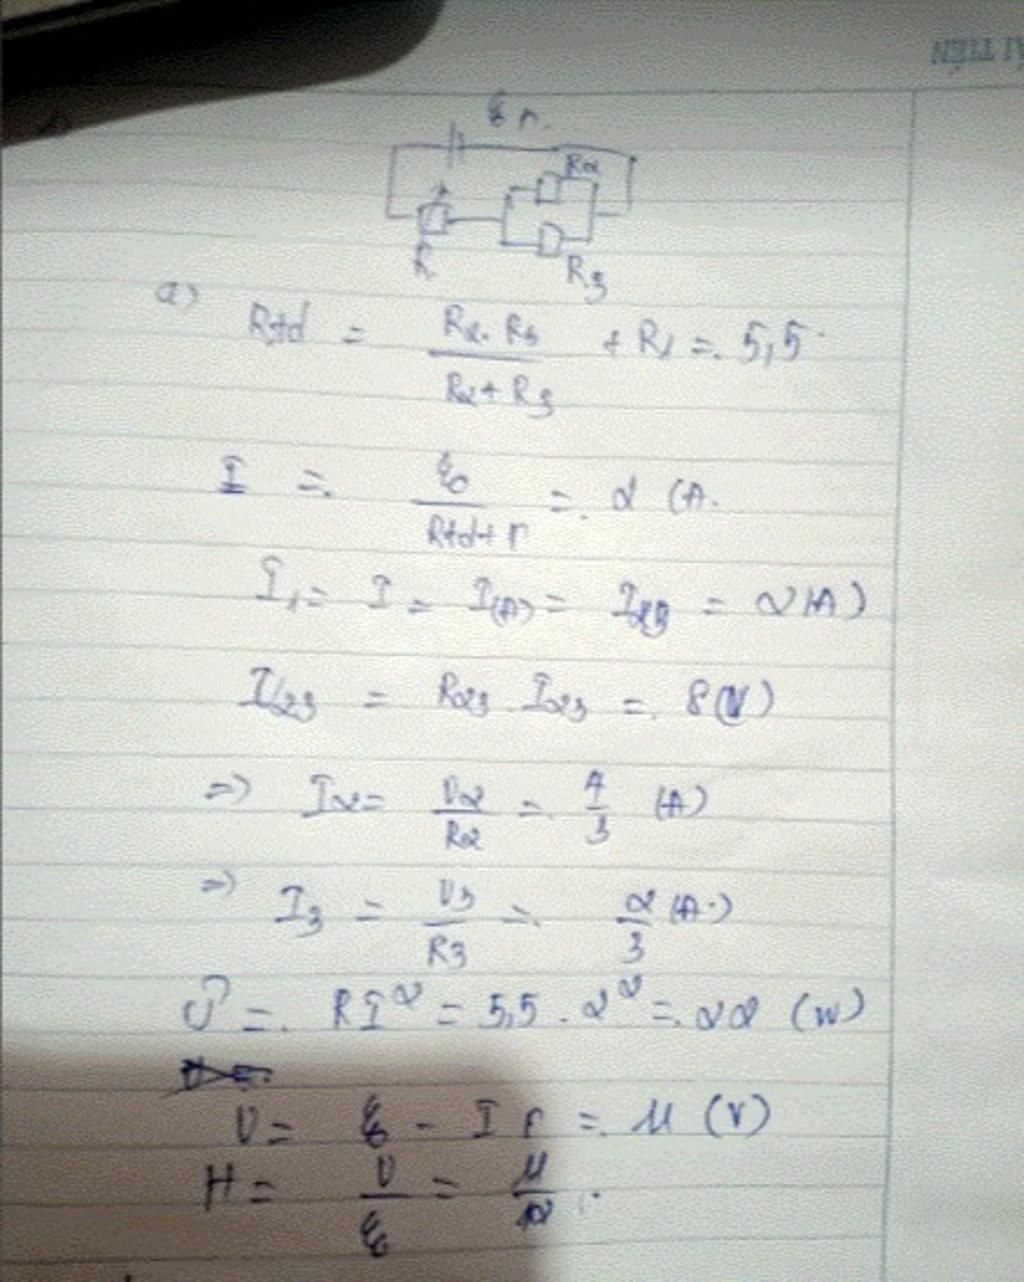 ξ r.
R2
R
R3
a) Rtđ = R2.R3 / R2+R3 + R1 = 5,5
I = ξ / Rtđ+r = 2 (A.
I1 = I = I(A) = I23 = 2(A)
U23 = R23 I23 = 8(V)
=) I2 = U2 / R2 = 4/3 (A)
=) I3 = U3 / R3 = 2/3 (A.)
P = RI² = 5,5 . 2² = 22 (W)
U = ξ - I r = 11 (V)
H = U / ξ = 11/12